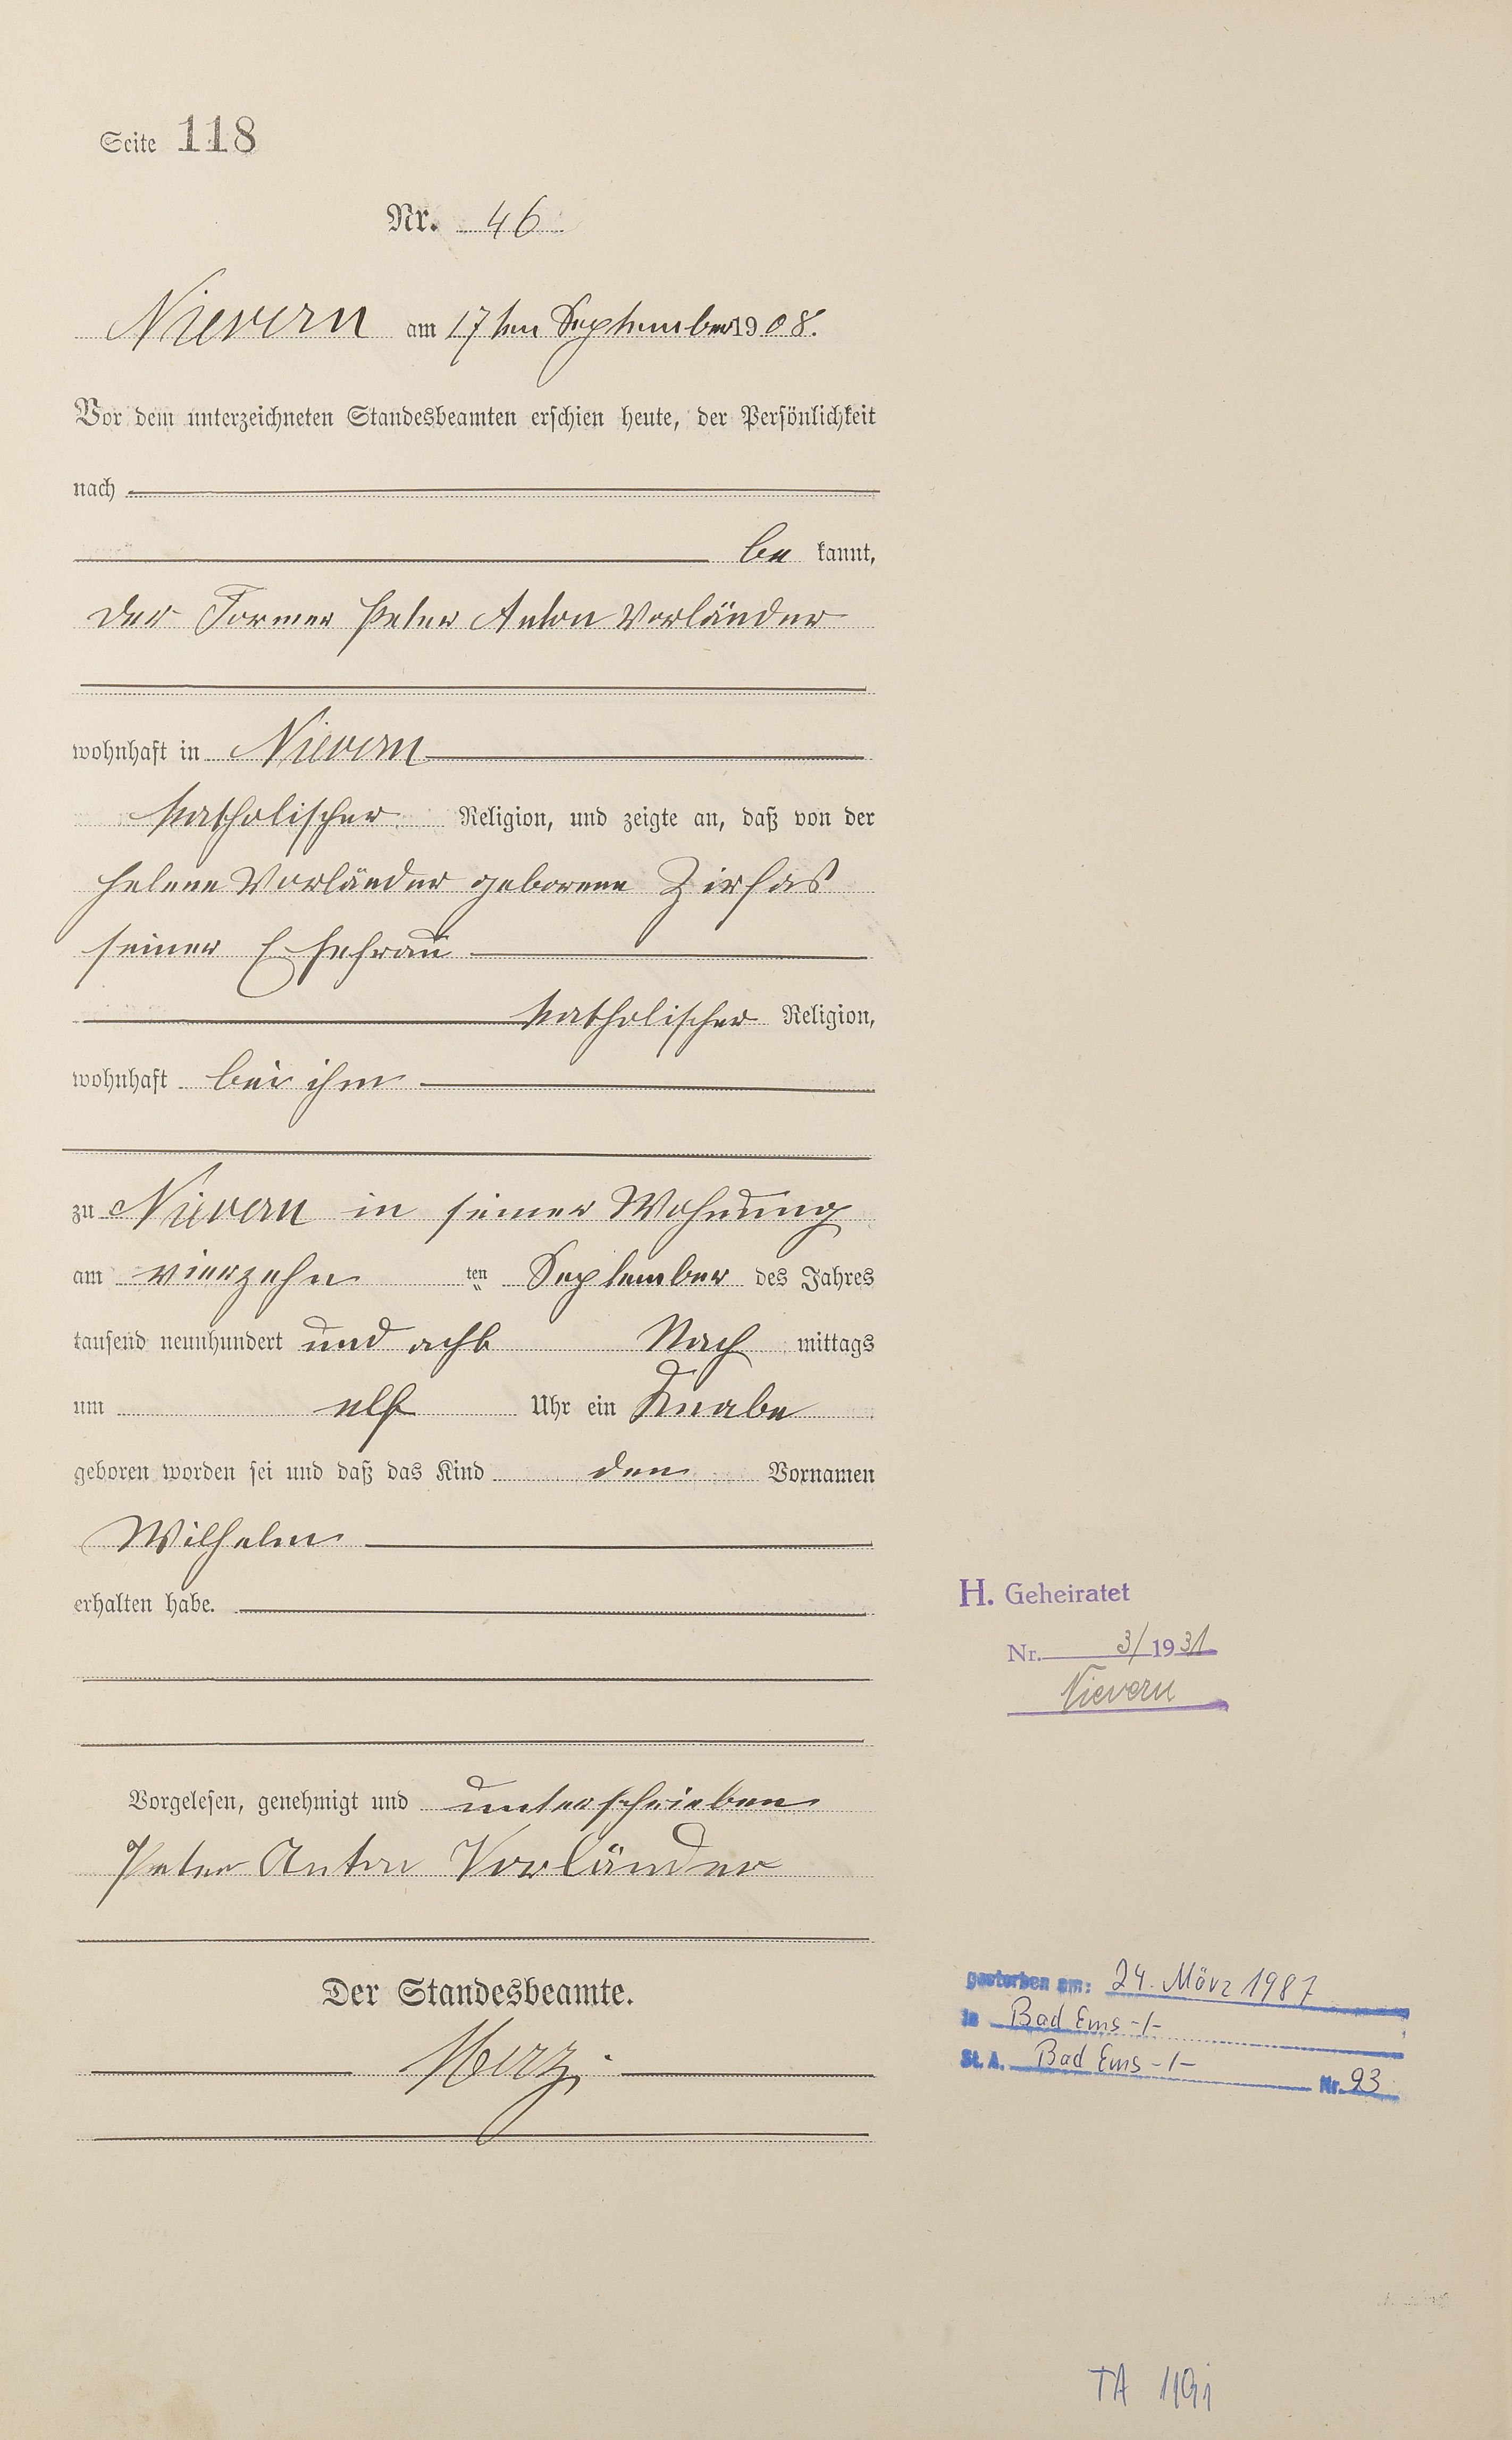 Seite 118
Nr. 46
Nievern am 17ten September 1908.
Vor dem unterzeichneten Standesbeamten erschien heute, der Persönlichkeit
nach
be kannt,
der Former Peter Anton Vorländer
wohnhaft in Nievern
katholischer Religion, und zeigte an, daß von der
Helene Vorländer geborene Zirfas
seiner Ehefrau
katholischer Religion,
wohnhaft bei ihm
zu Nievern in seiner Wohnung
am vierzehn ten September des Jahres
tausend neunhundert und acht Nach mittags
um elf Uhr ein Knabe
geboren worden sei und daß das Kind den Vornamen
Wilhelm
erhalten habe.
H. Geheiratet
Nr. 3/1931
Nievern
Vorgelesen, genehmigt und unterschrieben
Peter Anton Vorländer
Der Standesbeamte.
Merz
gestorben am: 24. März 1987
in Bad Ems -1-
St. A. Bad Ems -1-
Nr. 93
TA